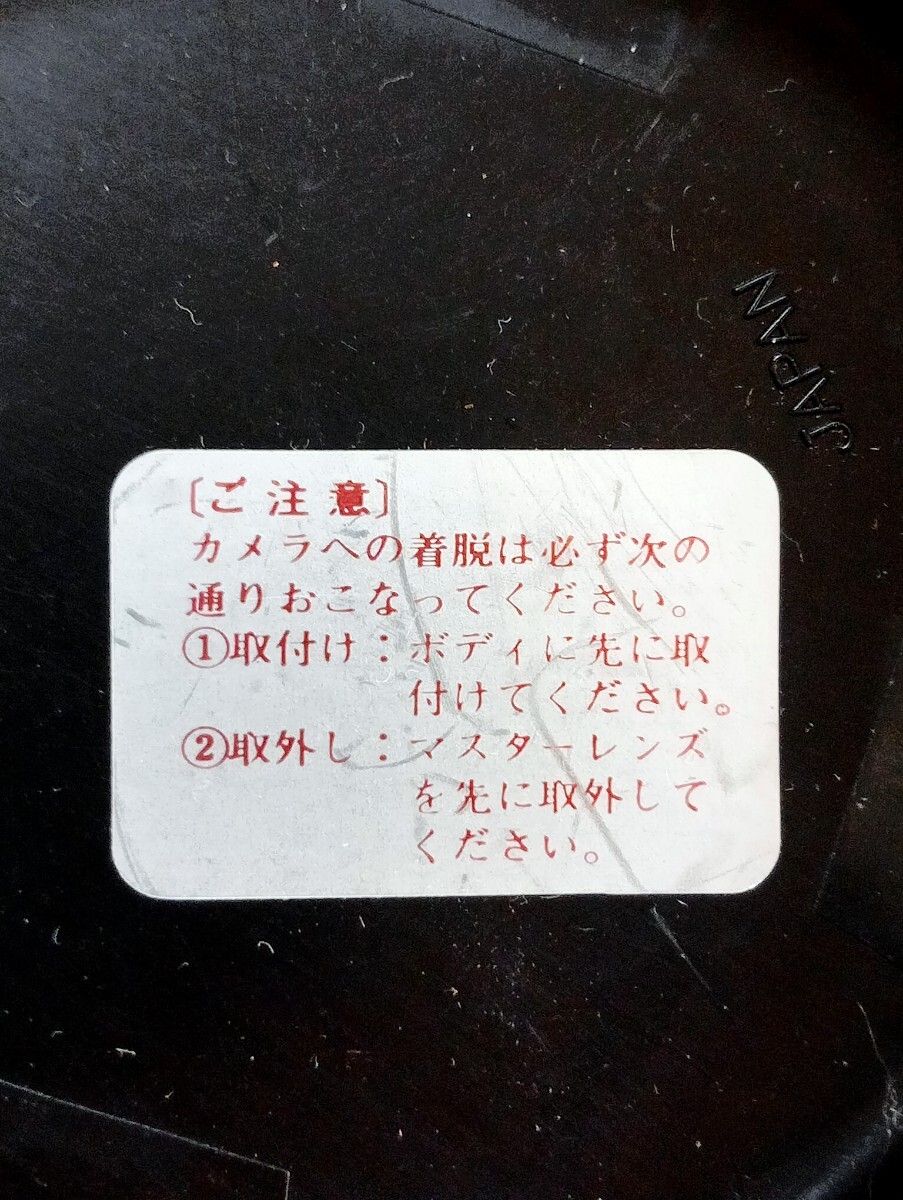 JAPAN
〔ご注意〕
カメラへの着脱は必ず次の
通りおこなってください。
①取付け：ボディに先に取
付けてください。
②取外し：マスターレンズ
を先に取外して
ください。